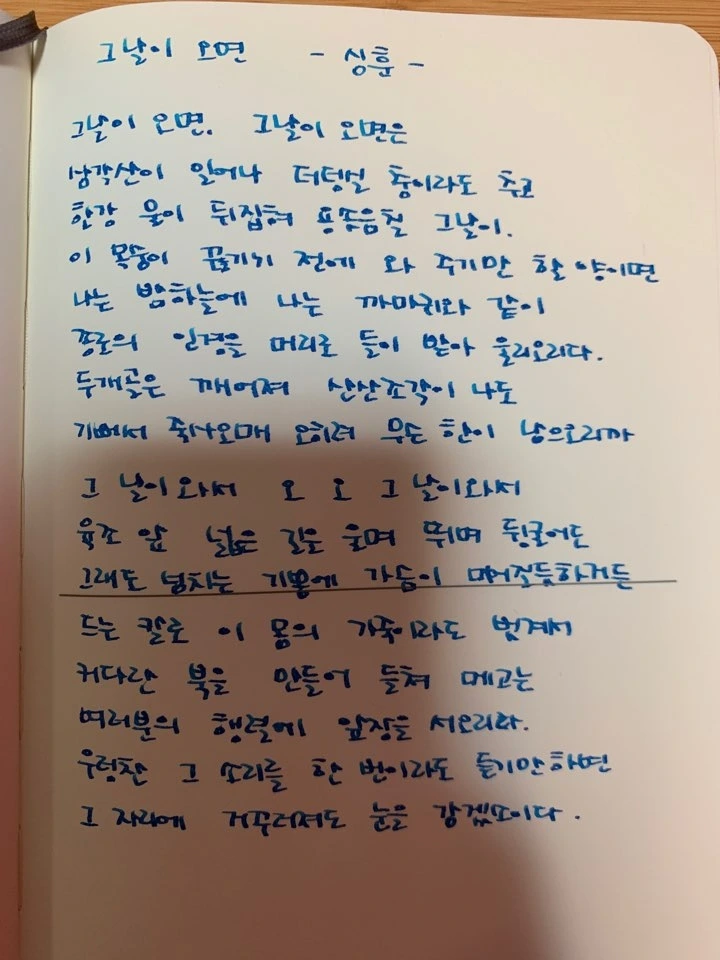 그날이 오면 - 심훈 -
그날이 오면, 그날이 오면은
삼각산이 일어나 더덩실 춤이라도 추고
한강 물이 뒤집혀 용솟음칠 그날이.
이 목숨이 끊기기 전에 와 주기만 할 양이면
나는 밤하늘에 나는 까마귀와 같이
종로의 인경을 머리로 들이 받아 울리오리다.
두개골은 깨어져 산산조각이 나도
기뻐서 죽사오매 오히려 무슨 한이 남으오리까
그 날이 와서 오 오 그 날이 와서
육조 앞 넓은 길은 울며 뛰며 뒹굴어도
그래도 넘치는 기쁨에 가슴이 미어질듯하거든
드는 칼로 이 몸의 가죽이라도 벗겨서
커다란 북을 만들어 들쳐 메고는
여러분의 행렬에 앞장을 서오리다.
우렁찬 그 소리를 한 번이라도 듣기만 하면
그 자리에 거꾸러져도 눈을 감겠소이다.